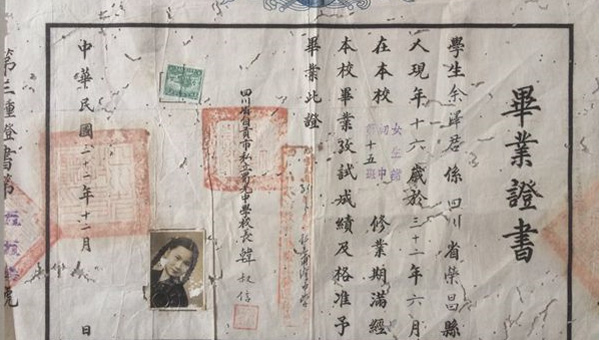 畢業證書
學生余澤君係四川省榮昌縣
人現年十六歲於三十二年六月
在本校
女生部
初中
十五班
修業期滿經
本校畢業攷試成績及格准予
畢業此證
四川省自貢市私立
中學校長韓叔信
中華民國三十二年十二月
日
第三種證書第
號